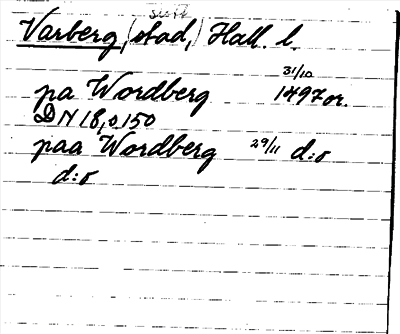 Varberg, (stad,) Hall. l.
pa Wordberg 31/10 1497 or.
DN 18, s 150
paa Wordberg 29/11 d:o
d:o